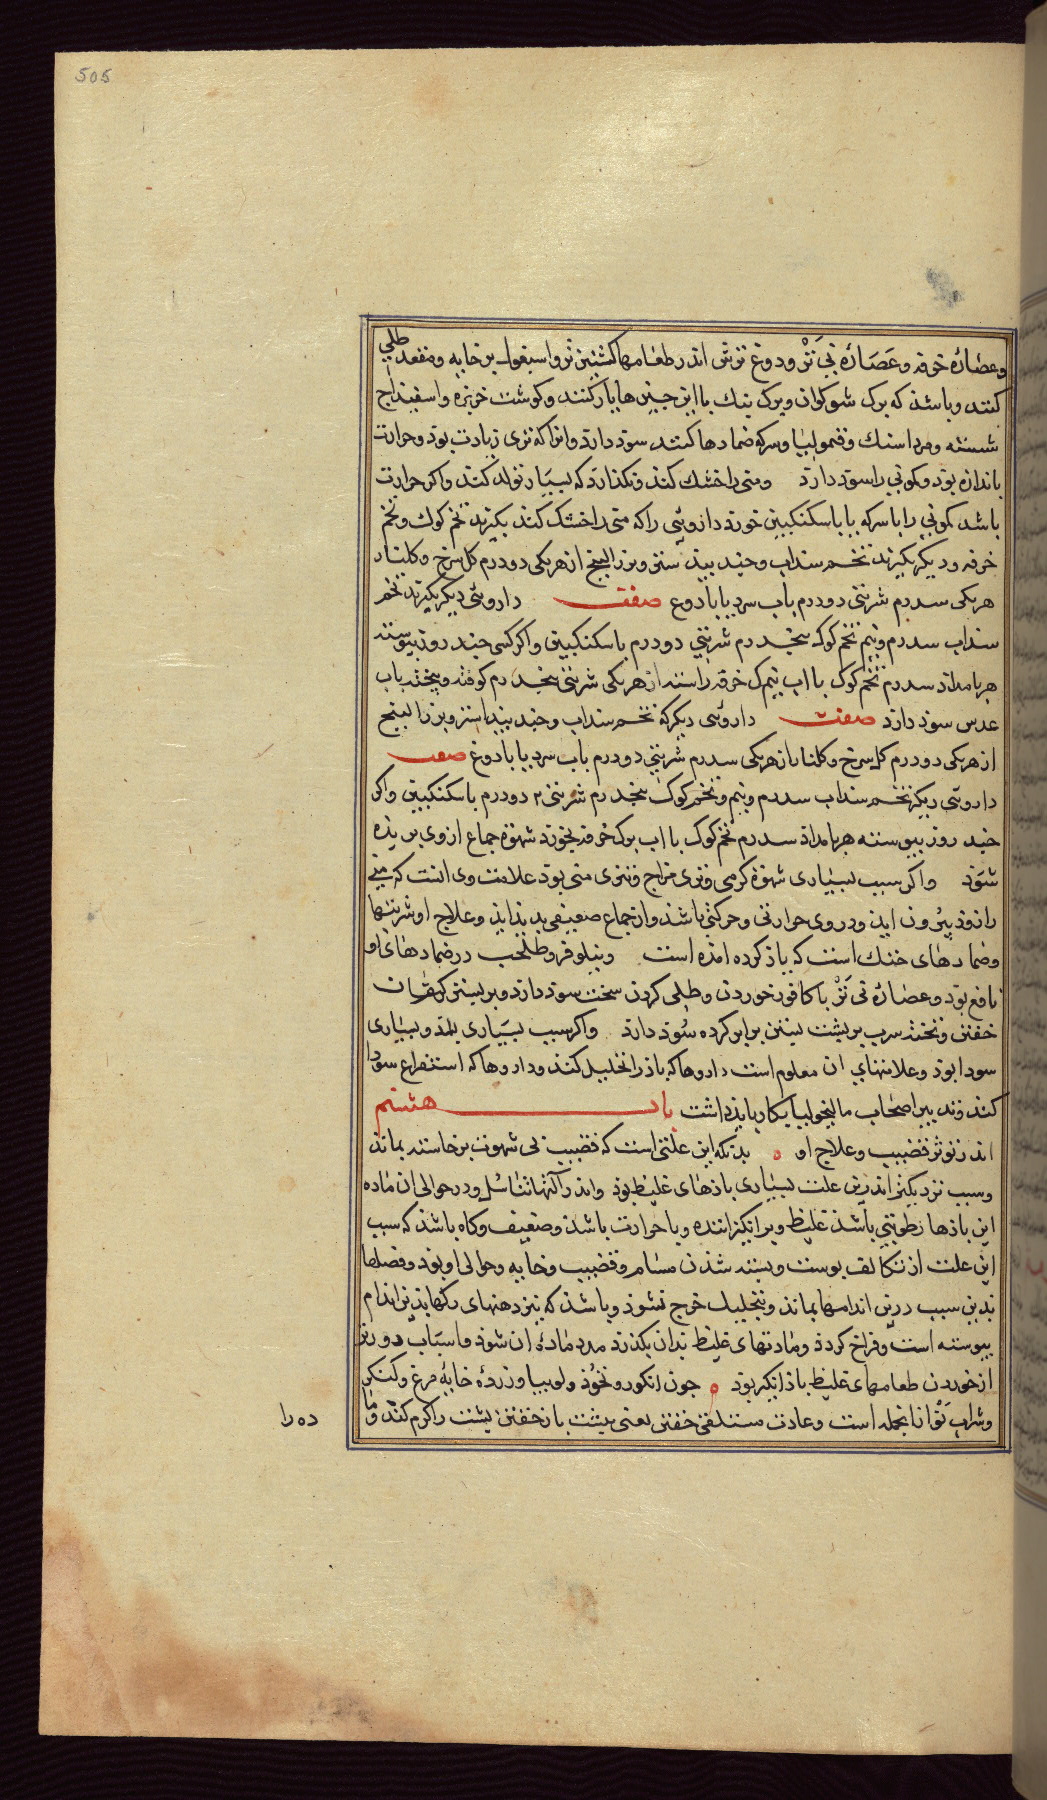 505
وعصارۀ خرفه وعصارۀ نی تر ودوغ ترش اندر طعامها کشنیز تر واسبغول بر خایه ومقعد طلی
کنند وباشذ که برک شوکران وبرک بنک با این جیزها یار کنند وکوشت خربزه واسفیذاج
شسته ومرداسنک وقیمولیا وسرکه ضمادها کنند سوذ دارذ وانرا که تری زیادت بوذ وحرارت
باندازه بوذ کمونی را سوذ دارذ ومنی را خشک کند ونکذارذ که بسیار تولد کند واکر حرارت
باشد کمونی را با سرکه یا با سکنکبین خورد داروئی را که منی را خشک کند بکیرند تخم کوک وتخم
خرفه ودیکر بکیرند تخم سنداب وجند بیذ ستر وبزر البنج از هر یکی دو درم کل سرخ وکلنار
هر یکی سدرم شربتی دو درم باب سرد یا بادوغ صفت داروئی دیکر بکیرند تخم
سنداب سدرم ونیم تخم کوک بنجدرم شربتی دو درم با سکنکبین واکر کسی جند روز بیوسته
هر بامداد سدرم تخم کوک با اب نیم ک خرفه راسته از هر یکی شربتی بنجدرم کوفته وبیخته باب
عدس سوذ دارذ صفت داروئی دیکر که تخم سنداب وجند بیذاستر وبزر البنج
از هر یکی دو درم کل سرخ وکلنار از هر یکی سدرم شربتی دو درم باب سرد یا بادوغ صفت
داروئی دیکر تخم سنداب سدرم ونیم وتخم کوک بنجدرم شربتی ۲ دو درم با سکنکبین واکر
جند روز بیوسته هر بامداذ سدرم تخم کوک با اب برک خرفه بخورد شهوة جماع ازوی بریذه
شوذ واکر سبب بسیاری شهوة کرمی وتری مزاج وتیزی منی بوذ علامت وی انست که منی
را زوذ بیرون ایذ ودروی حرارتی وحرکتی باشذ واز جماع ضعیفی بدیذ ایذ وعلاج او شربتها
وضمادهای خنک است که یاذ کرده امذه است ونیلوفر وطحلب در ضمادهای او
نافع بوذ وعصارۀ نی تر با کافور خوردن وطلی کردن سخت سوذ دارذ وبر بستر کتان
خفتن وتخته سرب بر بشت بستن برابر کرده سوذ دارذ واکر سبب بسیاری بلغم وبسیاری
سودا بوذ وعلامتهای ان معلوم است داروها که باذ را تحلیل کند وداروها که استفراغ سودا
کند وتدبیر اصحاب مالیخولیا بکار بایذ داشت باب هشتم
اندر توتر قضیب وعلاج او بدانکه این علتی است که قضیب بی شهوت برخاسته بماند
وسبب نزدیکتر اندرین علت بسیاری باذهای غلیظ بوذ واندر آلتهاء تناسل ودر حوالی ان ماده
این باذها رطوبتی باشذ غلیظ وبر انکیزاننده وبا حرارت باشذ وضعیف وکاه باشذ که سبب
این علت از تکاثف بوست وبسته شذن مسام وقضیب وخایه وحوالی او بوذ وفضلها
بدین سبب درین اندامها بماند وبتحلیل خرج نشوذ وباشذ که نیز دهنهای رکها بذین اندام
بیوسته است وفراخ کردد ومادتهای غلیظ بدان بکذرد مدد مادۀ ان شوذ واسباب دورتر
از خوردن طعامهای غلیظ باذ انکیز بوذ جون انکور ونخوذ ولوبیا وزردۀ خایۀ مرغ وکنکر
وشراب نو از انجمله است وعادت مستلقی خفتن یعنی بشت باز خفتن بشت را کرم کند وما
ده را